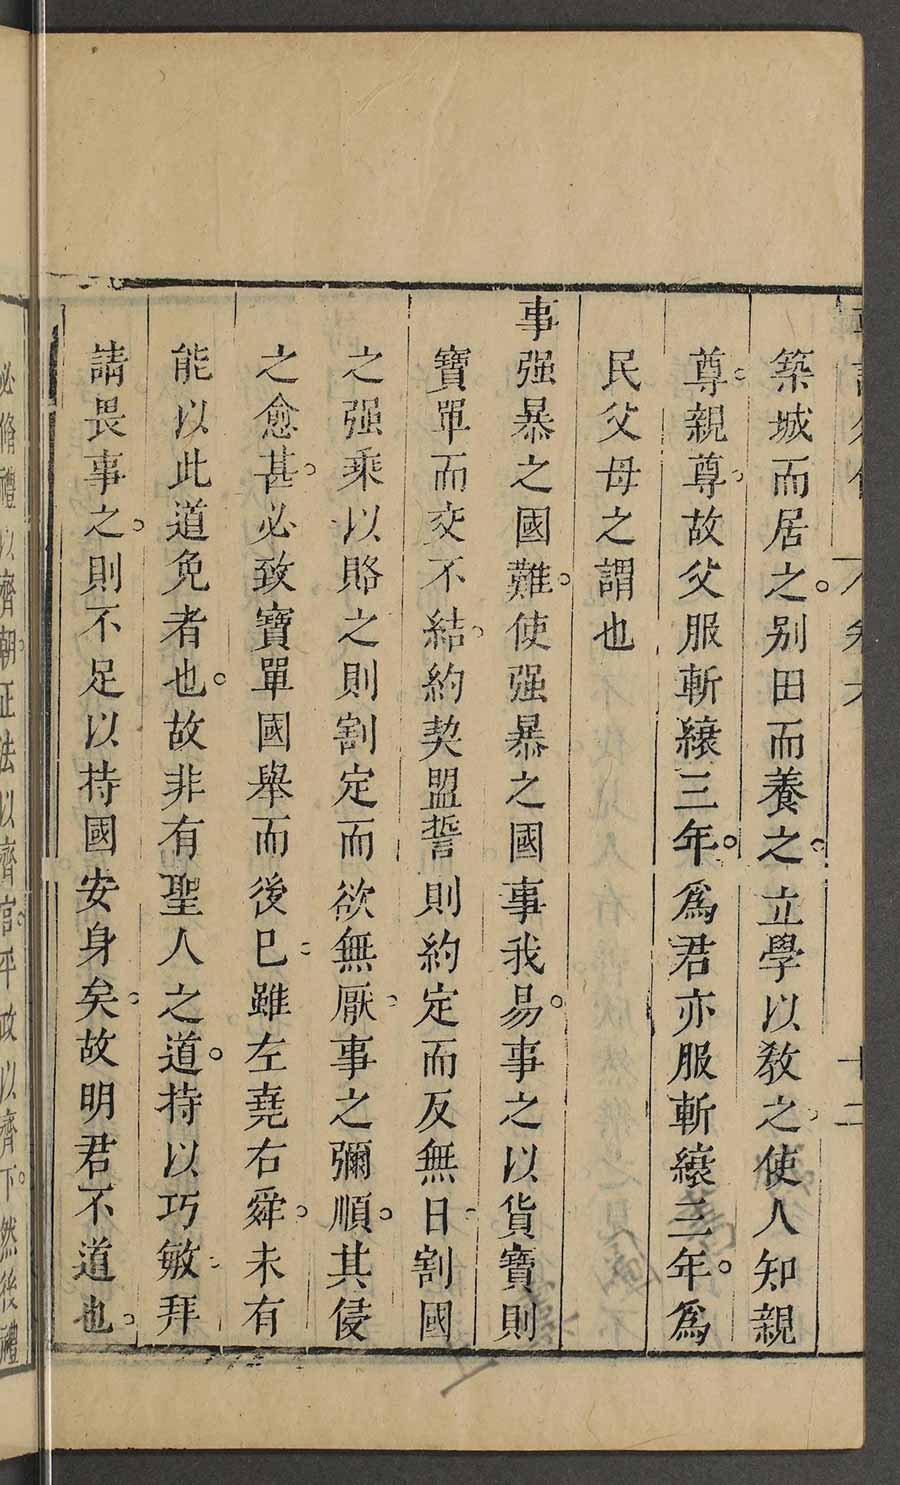 築城而居之。别田而養之。立學以教之。使人知親
尊。親尊。故父服斬縗三年。爲君亦服斬縗三年。爲
民父母之謂也
事强暴之國難。使强暴之國事我易。事之以貨寶則
寶單而交不結。約契盟誓則約定而反無日。割國
之强乘以賂之則割定而欲無厭。事之彌順。其侵
之愈甚。必致寶單國舉而後已。雖左堯右舜。未有
能以此道免者也。故非有聖人之道。持以巧敏拜
請畏事之。則不足以持國安身矣。故明君不道也。
必脩禮以齊朝。正法以齊官。平政以齊下。然後禮